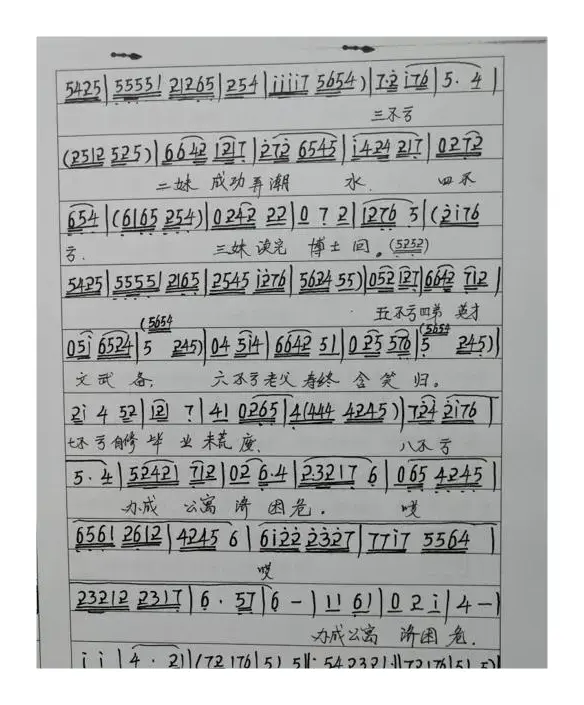 5425 | 55551 21265 | 254 | iiii7 5654) | 72 i76 | 5· 4 |
三不亏
(2512 525) | 6642 1217 | 272 6545 | i424 217 | 0272
二妹 成功弄潮 水. 四不
654 | (6165 254) | 0242 22 | 0 7 2 | 1276 5 | (2i76
亏. 三妹读完 博士回。(5252)
5425 | 55551 2165 | 2545 i276 | 5624 55) | 052 127 | 6642 712 |
五不亏四弟 英才
(5654 (5654
05i 6524 | 5 245) | 04 5i4 | 6642 51 | 025 576 | 5 245) |
文武备; 六不亏老父寿终 含笑归。
2i 4 52 | 121 7 | 41 0265 | 4(444 4245) | 724 2i76 |
七不亏自修毕业未荒废. 八不亏
5· 4 | 52421 712 | 02 6·4 | 23217 6 | 065 4245 |
办成 公寓济困危. 哎
6561 2612 | 4245 6 | 6i22 2327 | 77i7 5564 |
哎
23212 2317 | 6· 57 | 6 - | 11 61 | 0 2 i | 4 - |
办成公寓 济困危.
i i | 4· 2 | (72176 | 51 5 | 54 2321 | 72176 | 51 5)